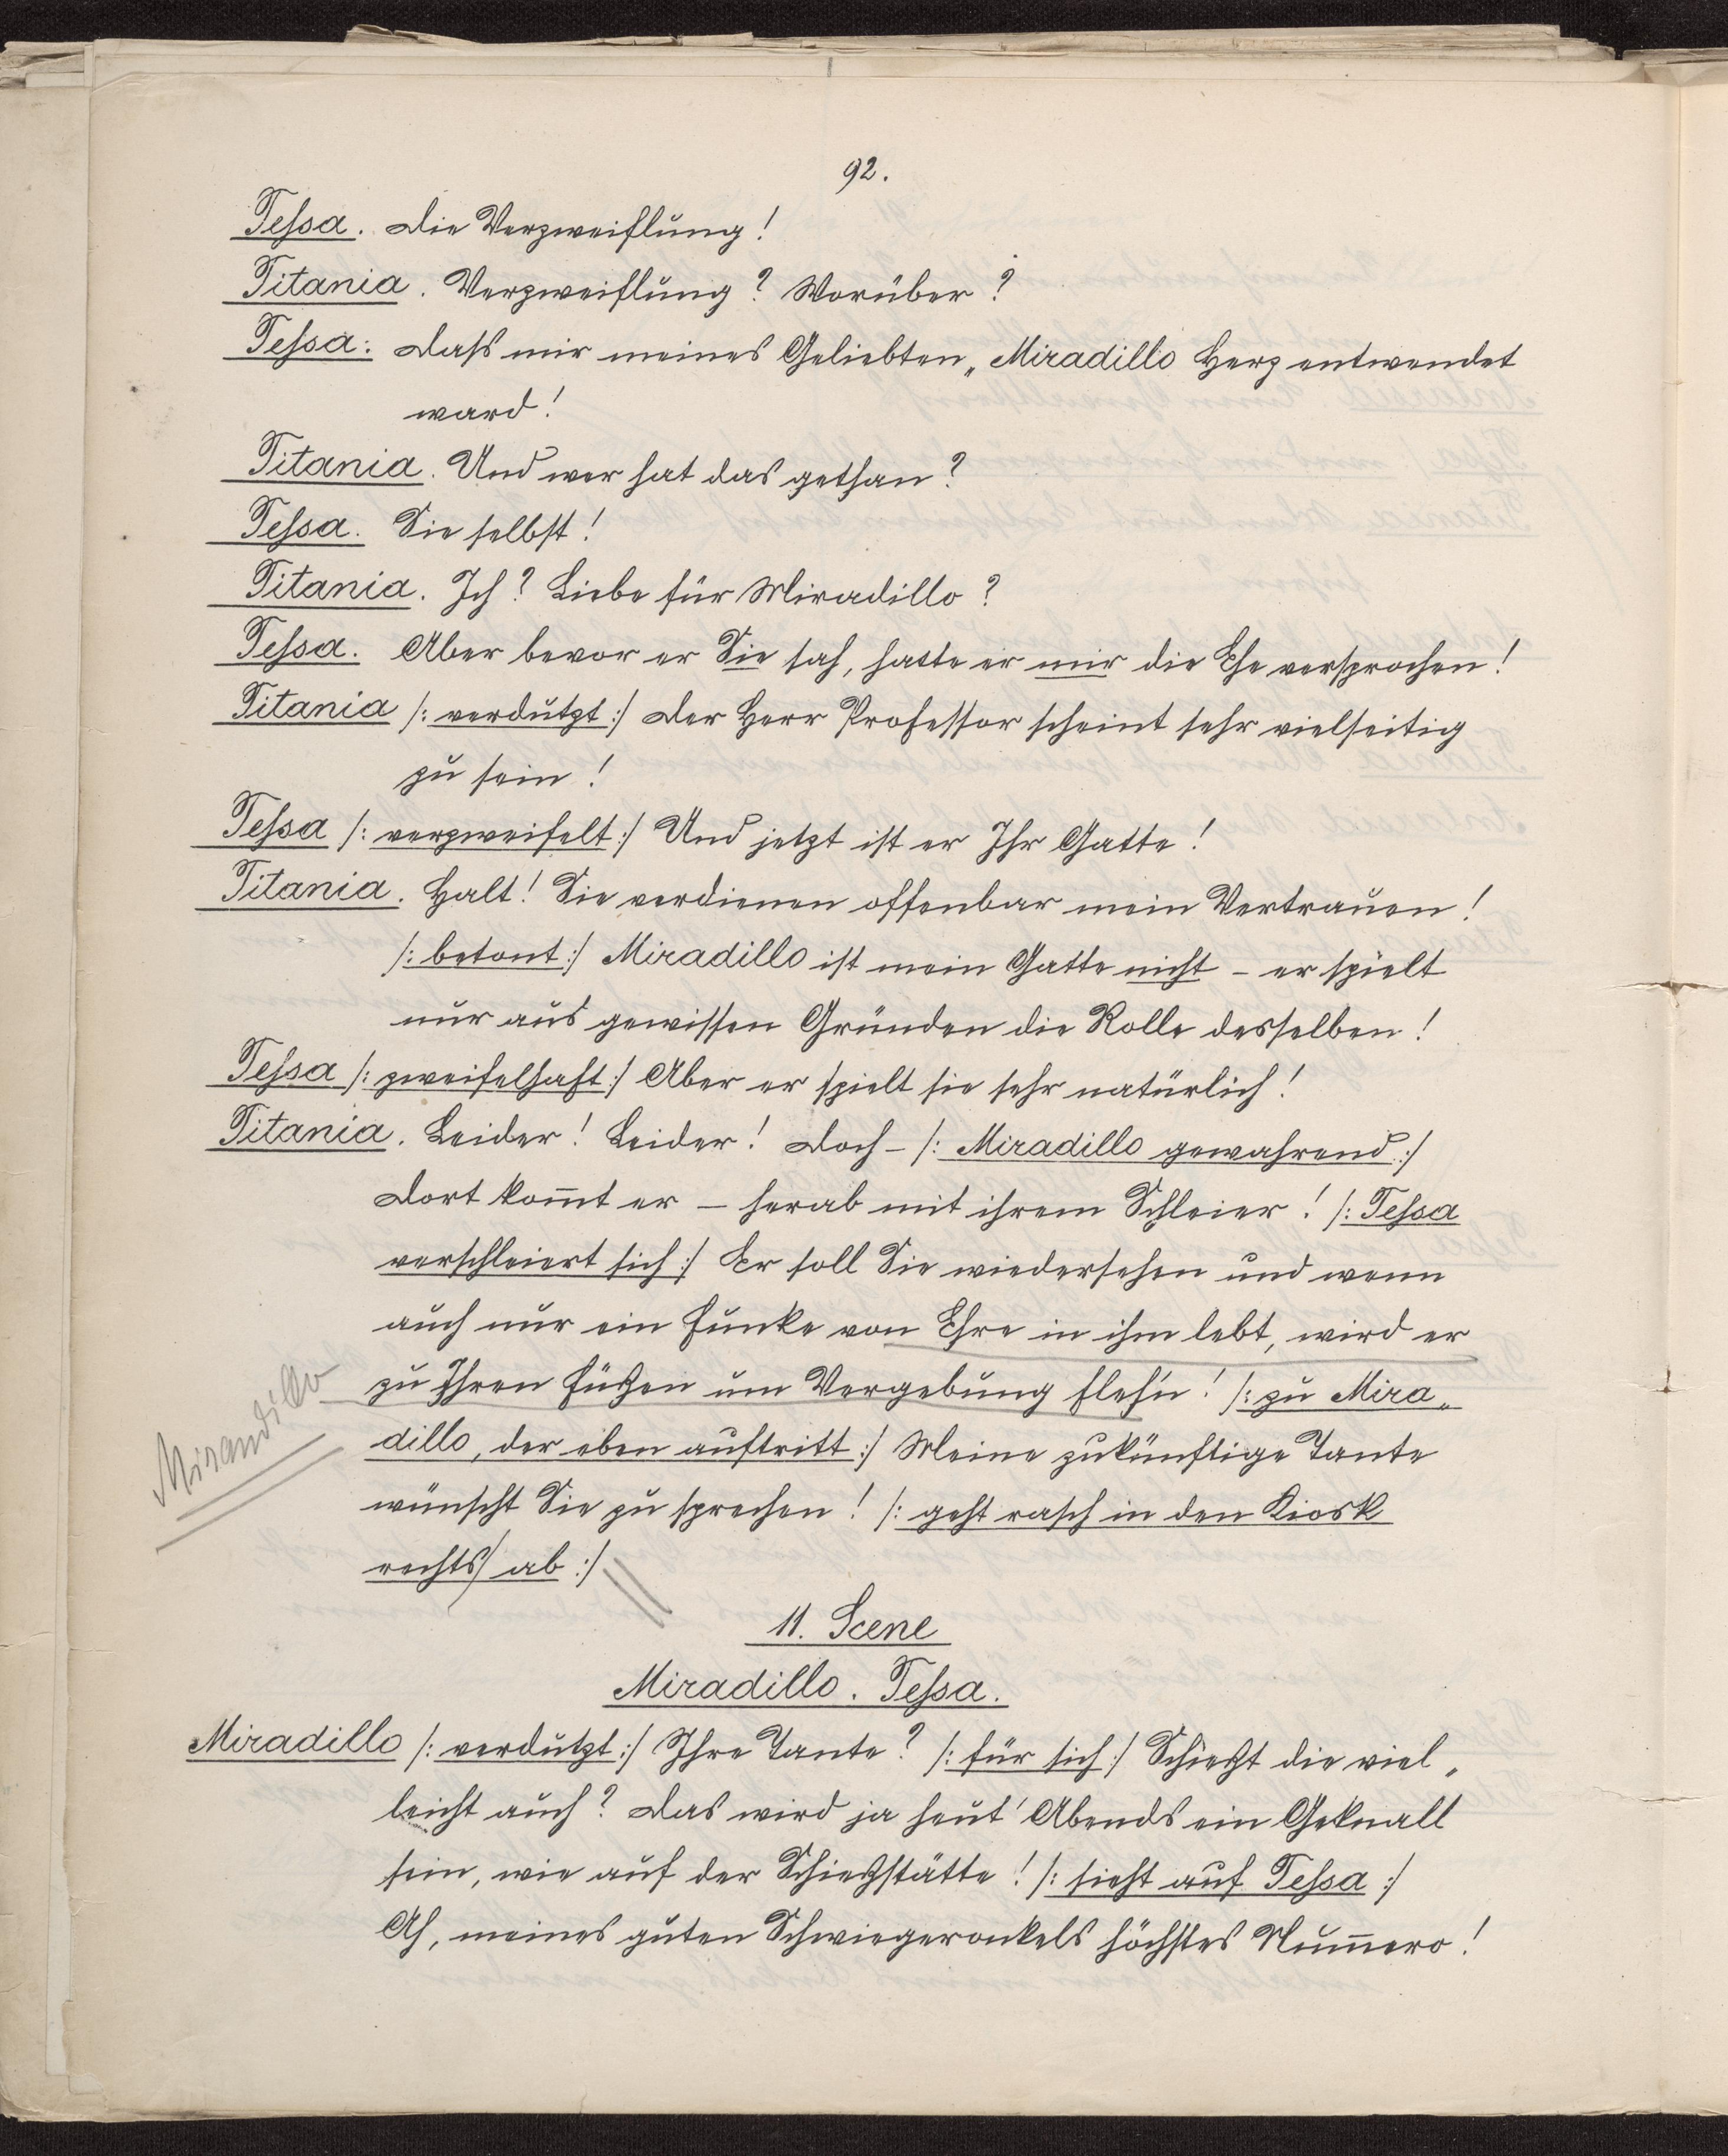 92.
Tessa. Die Verzweiflung!
Titania. Verzweiflung? Worüber?
Tessa: Dass mir meines Geliebten „Miradillo Herz entwendet
ward!
Titania. Und wer hat das gethan?
Tessa. Sie selbst!
Titania. Ich? Liebe für Miradillo?
Tessa. Aber bevor er Sie sah, hatte er mir die Ehe versprochen!
Titania /: verdutzt :/ Der Herr Professor scheint sehr vielseitig
zu sein!
Tessa /: verzweifelt :/ Und jetzt ist er Ihr Gatte!
Titania. Halt! Sie verdienen offenbar mein Vertrauen!
/: betont :/ Miradillo ist mein Gatte nicht – er spielt
nur aus gewissen Gründen die Rolle desselben!
Tessa /: zweifelhaft :/ Aber er spielt sie sehr natürlich!
Titania. Leider! Leider! Doch – /: Miradillo gewahrend :/
Dort kom̄t er – herab mit ihrem Schleier! /: Tessa
verschleiert sich :/ Er soll Sie wiedersehen und wenn
auch nur ein Funke von Ehre in ihm lebt, wird er
zu Ihren Füßen um Vergebung fleh'n! /: zu Mira„
Mirandillo
dillo, der eben auftritt :/ Meine zukünftige Tante
wünscht Sie zu sprechen! /: geht rasch in den Kiosk
rechts ab :/
11. Scene
Miradillo. Tessa.
Miradillo /: verdutzt :/ Ihre Tante? /: für sich :/ Schießt die viel„
leicht auch? Das wird ja heut' Abends ein Geknall
sein, wie auf der Schießstätte! /: sieht auf Tessa :/
Ah, meines guten Schwiegeronkels höchstes Num̄ero!